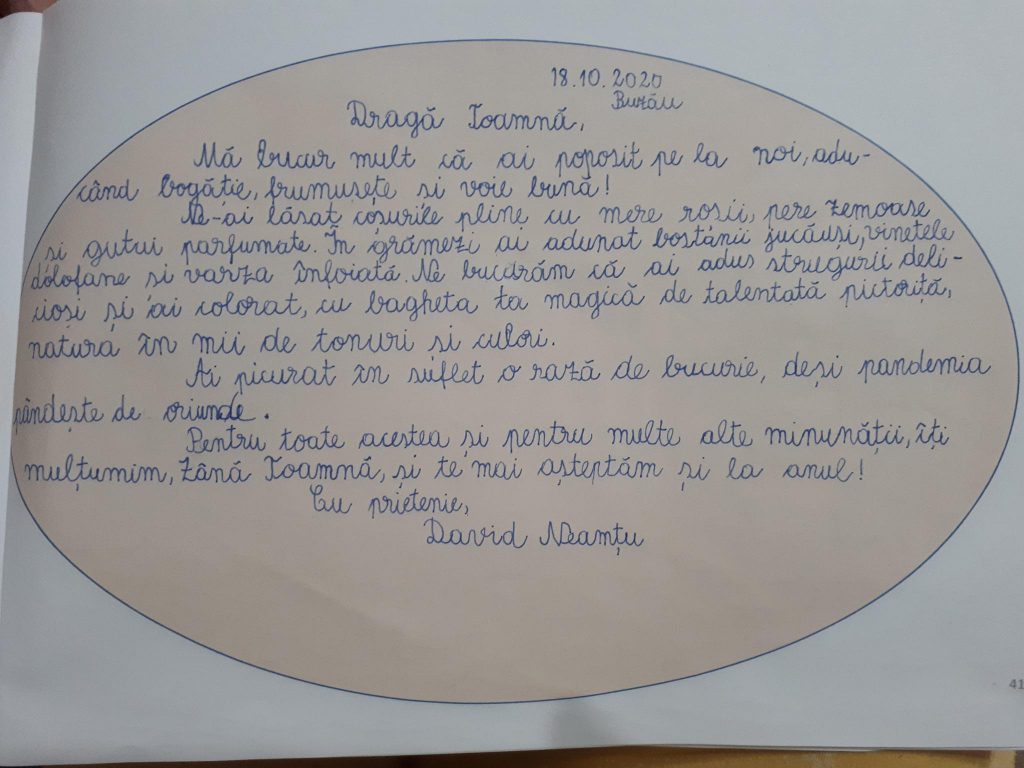 18.10.2020
Buzău
Dragă Toamnă,
Mă bucur mult că ai poposit pe la noi, adu-
când bogăție, frumusețe și voie bună!
Ne-ai lăsat coșurile pline cu mere roșii, pere zemoase
și gutui parfumate. În grămezi ai adunat bostanii jucăuși, vinetele
dolofane și varza înfoiată. Ne bucurăm că ai adus strugurii deli-
cioși și ai colorat, cu bagheta ta magică de talentată pictoriță,
natura în mii de tonuri și culori.
Ai picurat în suflet o rază de bucurie, deși pandemia
pândește de oriunde.
Pentru toate acestea și pentru multe alte minunății, îți
mulțumim, Zână Toamnă, și te mai așteptăm și la anul!
Cu prietenie,
David Neamțu
41